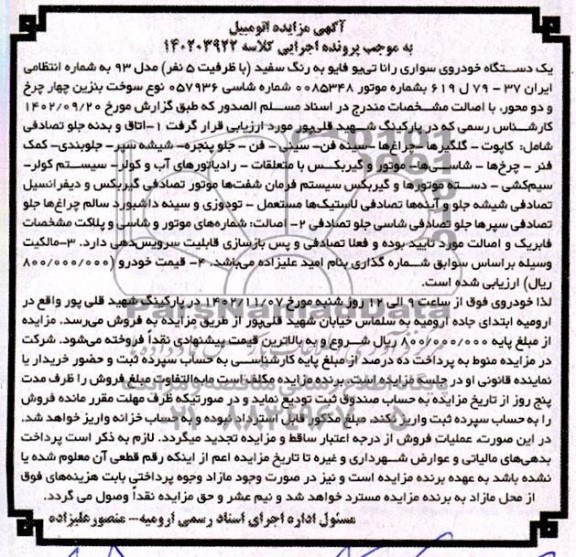 آگهی مزایده اتومبیل
به موجب پرونده اجرایی کلاسه ۱۴۰۲۰۳۹۲۲
یک دستگاه خودروی سواری رانا تی‌یو فایو به رنگ سفید (با ظرفیت ۵ نفر) مدل ۹۳ به شماره انتظامی
ایران ۳۷ - ۷۹ ل ۶۱۹ بشماره موتور ۰۰۸۵۳۴۸ شماره شاسی ۰۵۷۹۳۶ نوع سوخت بنزین چهار چرخ
و دو محور، با اصالت مشخصات مندرج در اسناد مسلم الصدور که طبق گزارش مورخ ۱۴۰۲/۰۹/۲۰
کارشناس رسمی که در پارکینگ شهید قلی‌پور مورد ارزیابی قرار گرفت ۱-اتاق و بدنه جلو تصادفی
شامل: کاپوت - گلگیرها -چراغ‌ها -سینه فن- سینی - فن - جلو پنجره- شیشه سپر- جلوبندی- کمک
فنر - چرخ‌ها - شاسی‌ها- موتور و گیربکس با متعلقات - رادیاتورهای آب و کولر- سیستم کولر-
سیم‌کشی - دسته موتورها و گیربکس سیستم فرمان شفت‌ها موتور تصادفی گیربکس و دیفرانسیل
تصادفی شیشه جلو و آینه‌ها تصادفی لاستیک‌ها مستعمل - تودوزی و سینه داشبورد سالم چراغ‌ها جلو
تصادفی سپرها جلو تصادفی شاسی جلو تصادفی ۲- اصالت: شماره‌های موتور و شاسی و پلاکت مشخصات
فابریک و اصالت مورد تایید بوده و فعلا تصادفی و پس بازسازی قابلیت سرویس‌دهی دارد. ۳-مالکیت
وسیله براساس سوابق شماره گذاری بنام امید علیزاده می‌باشد. ۴- قیمت خودرو (۸۰۰/۰۰۰/۰۰۰
ریال) ارزیابی شده است.
لذا خودروی فوق از ساعت ۹ الی ۱۲ روز شنبه مورخ ۱۴۰۲/۱۱/۰۷ در پارکینگ شهید قلی پور واقع در
ارومیه ابتدای جاده ارومیه به سلماس خیابان شهید قلی‌پور از طریق مزایده به فروش می‌رسد. مزایده
از مبلغ پایه ۸۰۰/۰۰۰/۰۰۰ ریال شروع و به بالاترین قیمت پیشنهادی نقداً فروخته می‌شود. شرکت
در مزایده منوط به پرداخت ده درصد از مبلغ پایه کارشناسی به حساب سپرده ثبت و حضور خریدار یا
نماینده قانونی او در جلسه مزایده است. برنده مزایده مکلف است مابه‌التفاوت مبلغ فروش را ظرف مدت
پنج روز از تاریخ مزایده به حساب صندوق ثبت تودیع نماید و در صورتیکه ظرف مهلت مقرر مانده فروش
را به حساب سپرده ثبت واریز نکند، مبلغ مذکور قابل استرداد نبوده و به حساب خزانه واریز خواهد شد.
در این صورت، عملیات فروش از درجه اعتبار ساقط و مزایده تجدید میگردد. لازم به ذکر است پرداخت
بدهی‌های مالیاتی و عوارض شهرداری و غیره تا تاریخ مزایده اعم از اینکه رقم قطعی آن معلوم شده یا
نشده باشد به عهده برنده مزایده است و نیز در صورت وجود مازاد وجوه پرداختی بابت هزینه‌های فوق
از محل مازاد به برنده مزایده مسترد خواهد شد و نیم عشر و حق مزایده نقداً وصول می گردد.
مسئول اداره اجرای اسناد رسمی ارومیه- منصور علیزاده